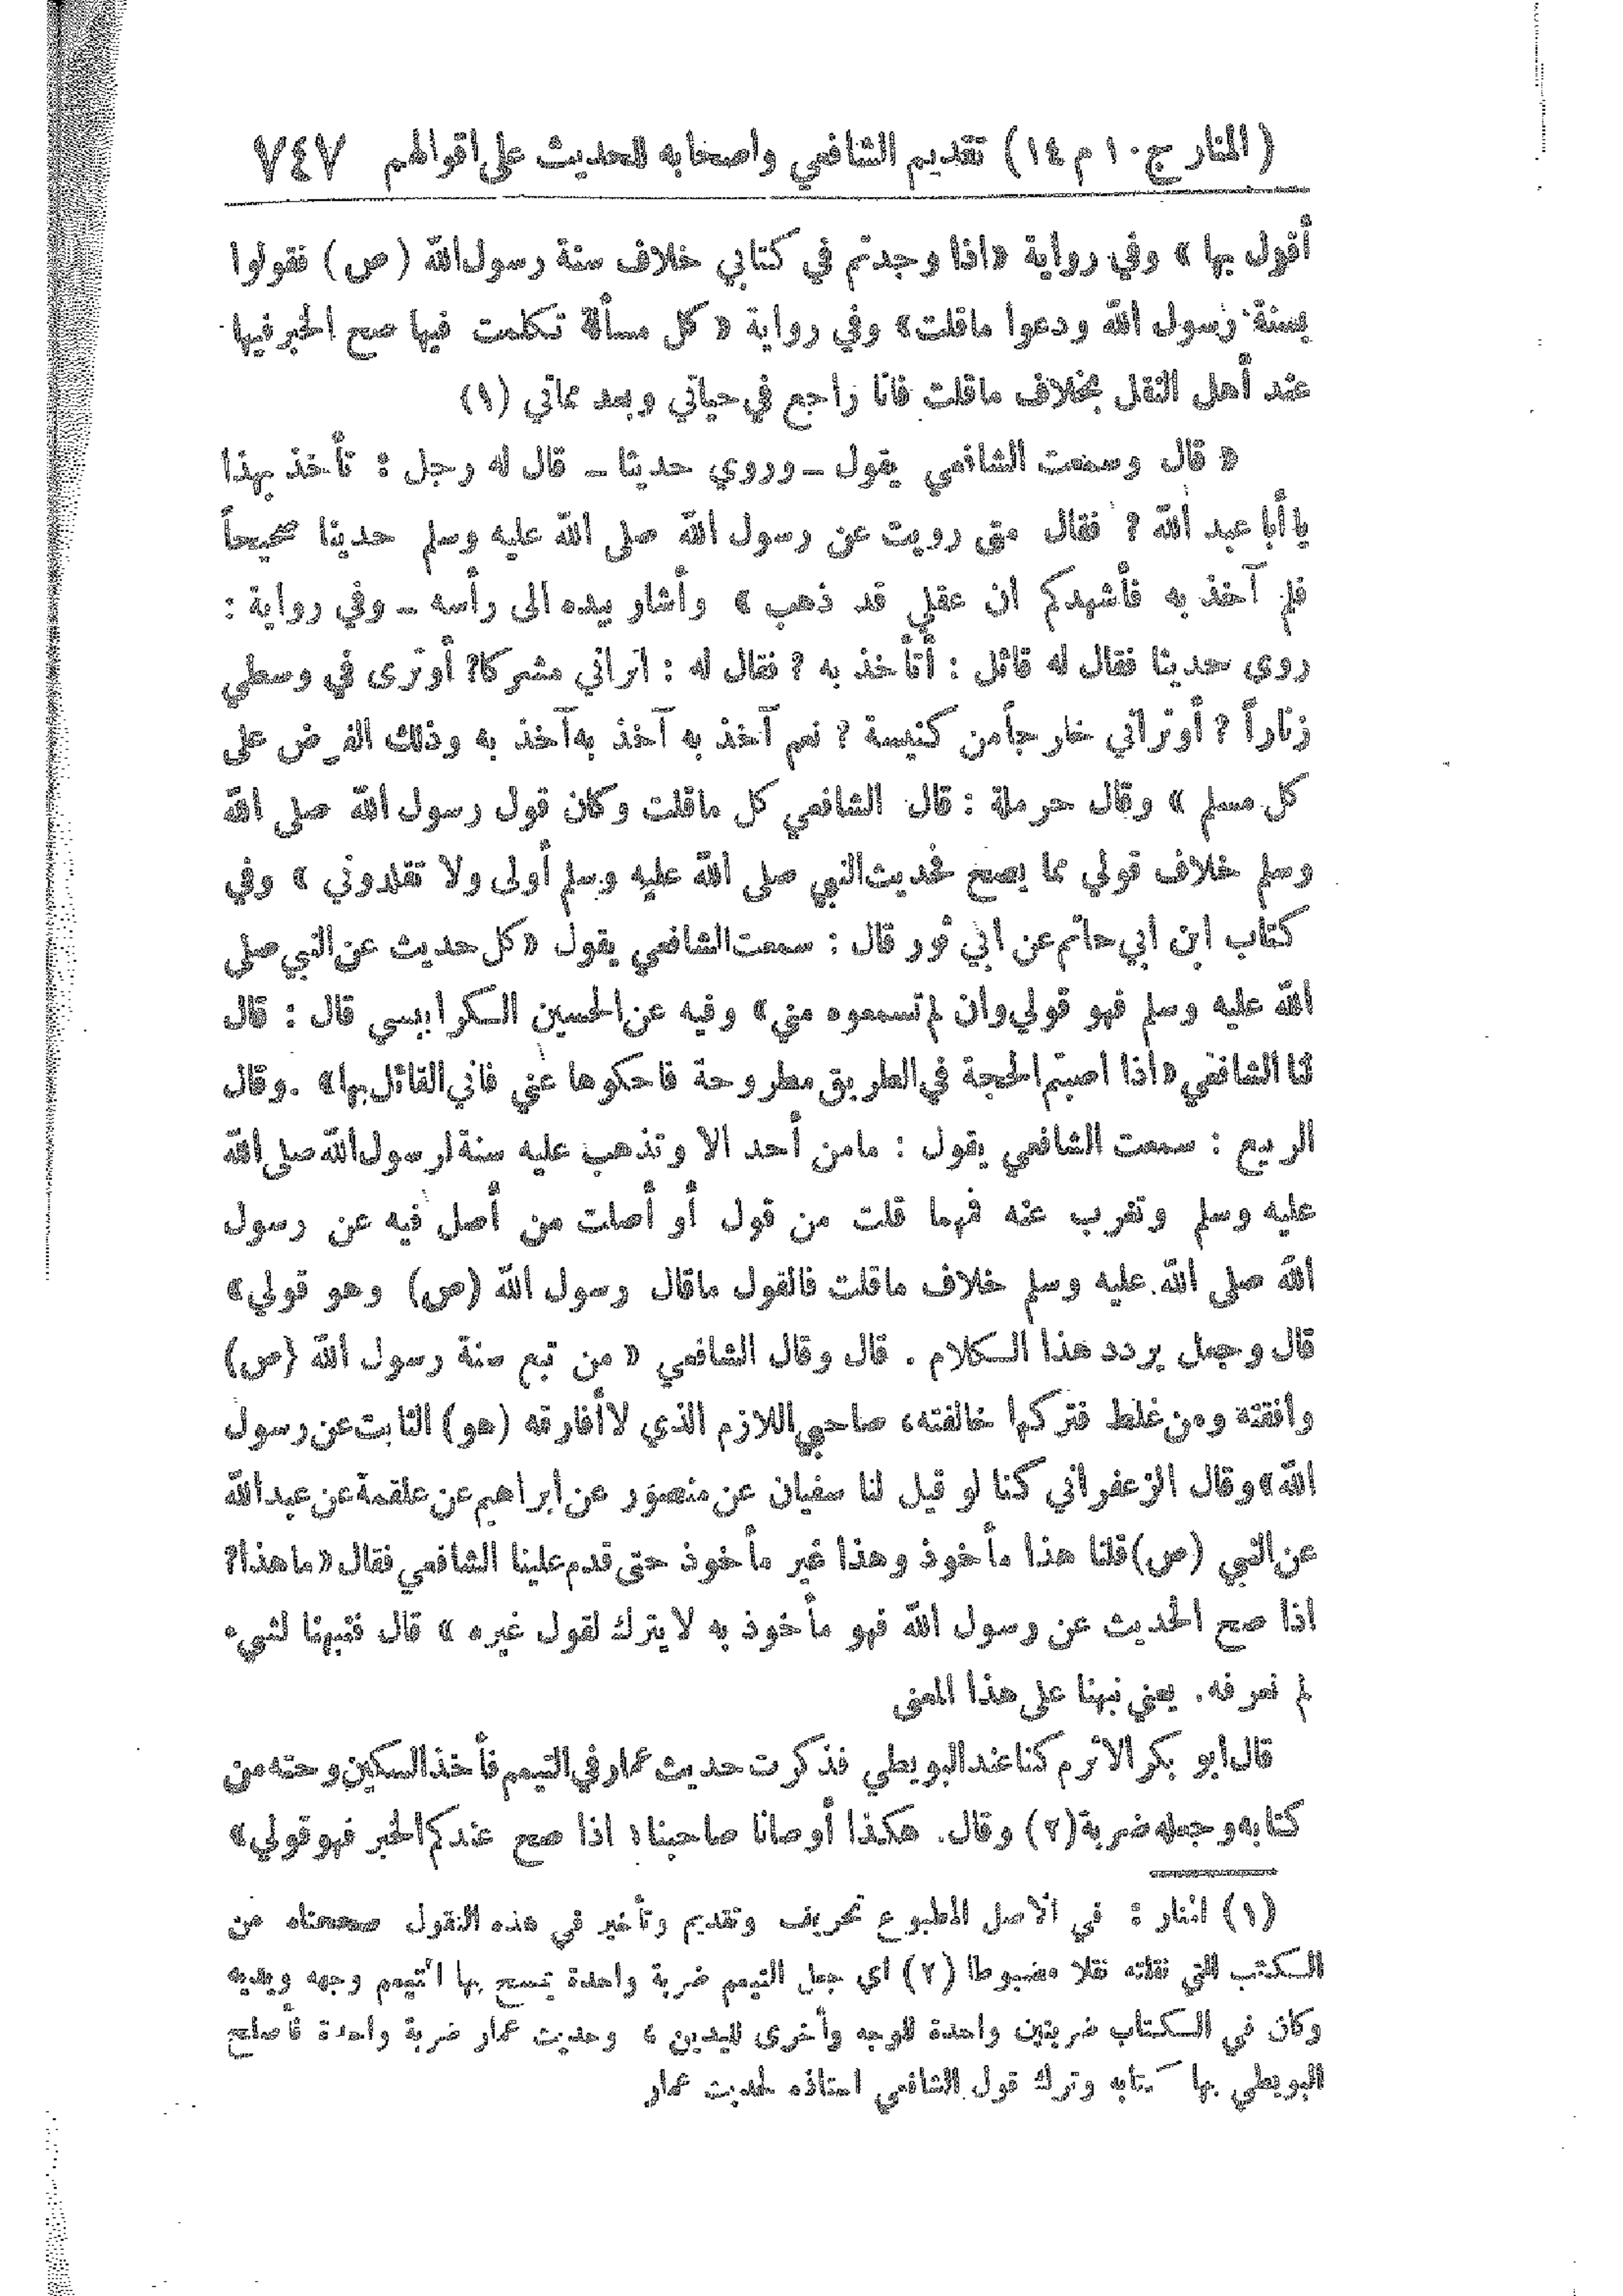 (المنار ج ١٠ م ١٤) تقديم الشافعي واصحابه للحديث على اقوالهم ٧٤٧
أقول بها » وفي رواية «اذا وجدتم في كتابي خلاف سنة رسول الله (ص) فقولوا
بسنة رسول الله ودعوا ماقلت» وفي رواية « كل مسألة تكلمت فيها صح الخبر فيها
عند أهل النقل بخلاف ماقلت فانا راجع في حياتي وبعد مماتي (١)
« قال وسمعت الشافعي يقول ــ وروي حديثا ــ قال له رجل : تأخذ بهذا
يا أبا عبد الله ؟ فقال متى رويت عن رسول الله صلى الله عليه وسلم حديثا صحيحاً
فلم آخذ به فأشهدكم ان عقلي قد ذهب » وأشار بيده الى رأسه ــ وفي رواية :
روى حديثا فقال له قائل : أتأخذ به ؟ فقال له : اتراني مشركا؟ أو ترى في وسطي
زناراً ؟ أو تراني خارجاً من كنيسة ؟ نعم آخذ به آخذ به آخذ به وذلك الفرض على
كل مسلم » وقال حرملة : قال الشافعي كل ماقلت وكان قول رسول الله صلى الله
وسلم خلاف قولي مما يصح فحديث النبي صلى الله عليه وسلم أولى ولا تقلدوني » وفي
كتاب ابن ابي حاتم عن ابي ثور قال : سمعت الشافعي يقول «كل حديث عن النبي صلى
الله عليه وسلم فهو قولي وان لم تسمعوه مني» وفيه عن الحسين الكرابيسي قال : قال
لنا الشافعي «اذا اصبتم الحجة في الطريق مطروحة فاحكوها عني فاني القائل بها» . وقال
الربيع : سمعت الشافعي يقول : مامن أحد الا وتذهب عليه سنة لرسول الله صلى الله
عليه وسلم وتعزب عنه فمهما قلت من قول أو أصلت من أصل فيه عن رسول
الله صلى الله عليه وسلم خلاف ماقلت فالقول ماقال رسول الله (ص) وهو قولي»
قال وجعل يردد هذا الكلام . قال وقال الشافعي « من تبع سنة رسول الله (ص)
وافقته ومن غلط فتركها خالفته، صاحبي اللازم الذي لا أفارقه (هو) الثابت عن رسول
الله» وقال الزعفراني كنا لو قيل لنا سفيان عن منصور عن ابراهيم عن علقمة عن عبد الله
عن النبي (ص) قلنا هذا مأخوذ وهذا غير مأخوذ حتى قدم علينا الشافعي فقال «ما هذا؟
اذا صح الحديث عن رسول الله فهو مأخوذ به لا يترك لقول غيره » قال فنبهنا لشيء
لم نعرفه . يعني نبهنا على هذا المعنى
قال ابو بكر الاثرم كنا عند البويطي فذكرت حديث عمار في التيمم فأخذ السكين وحته من
كتابه وجعله ضربة (٢) وقال . هكذا أوصانا صاحبنا « اذا صح عندكم الخبر فهو قولي»
(١) المنار : في الاصل المطبوع تحريف وتقديم وتأخير في هذه النقول صححناه من
الكتب التي نقلته نقلا مضبوطا (٢) اي جعل التيمم ضربة واحدة يمسح بها المتيمم وجهه ويديه
وكان في الكتاب ضربتين واحدة للوجه وأخرى لليدين ، وحديث عمار ضربة واحدة فأصلح
البويطي بها كتابه وترك قول الشافعي استاذه لحديث عمار